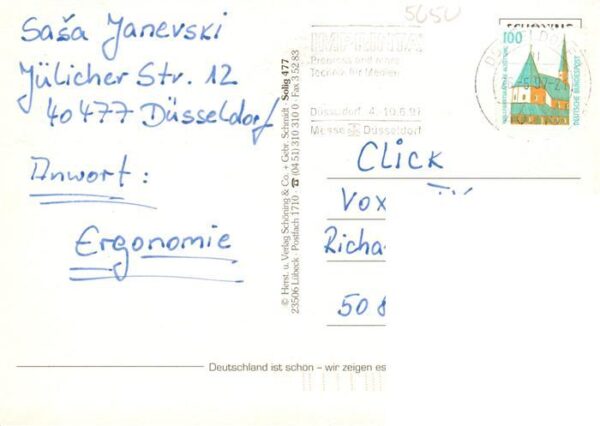 Saša Janevski
Jülicher Str. 12
40 477 Düsseldorf
Anwort:
Ergonomie
© Herst. u. Verlag Schöning & Co. + Gebr. Schmidt · Solig 477
23506 Lübeck · Postfach 1710 · ☎ (04 51) 310 310 0 · Fax 3 52 83
5650
IMPRINTA
Düsseldorf 4.-10.6.97
Messe Düsseldorf
SCHÖNING
100
DEUTSCHE BUNDESPOST
Click
Vox
Richa
50 8
Deutschland ist schön – wir zeigen es